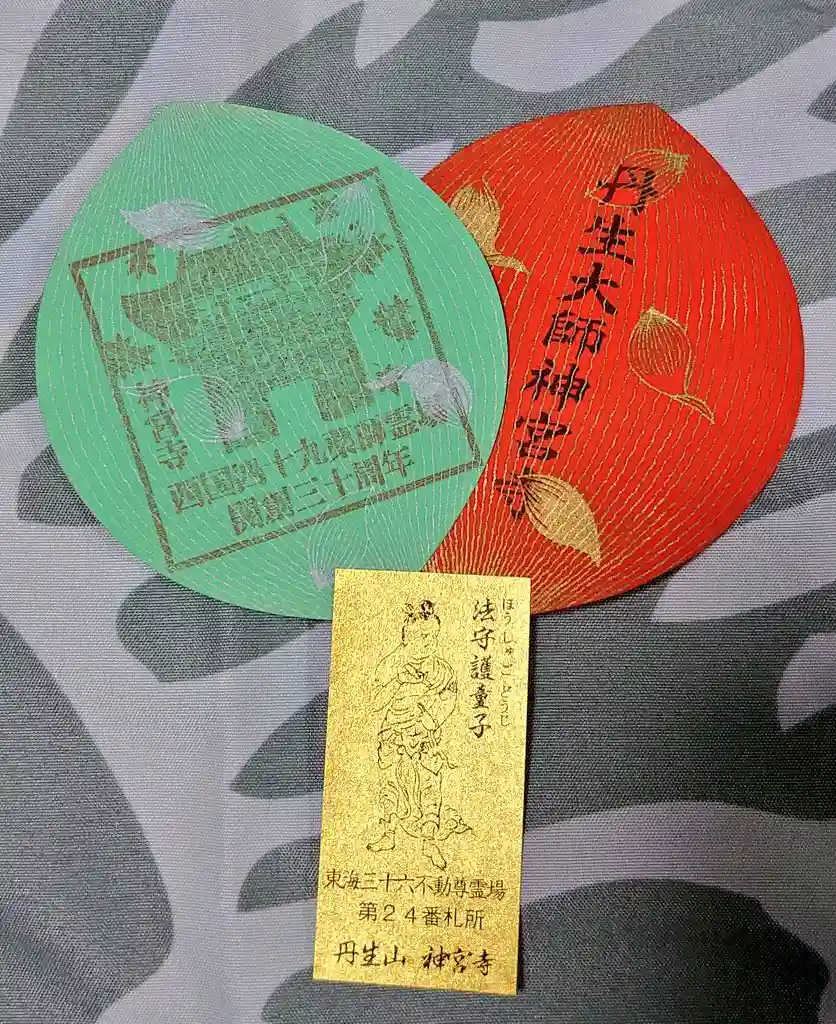 神宮寺
四国四十九薬師霊場
開創三十周年
丹生大師神宮寺
法守護童子
ほうしゅごどうじ
東海三十六不動尊霊場
第24番札所
丹生山 神宮寺